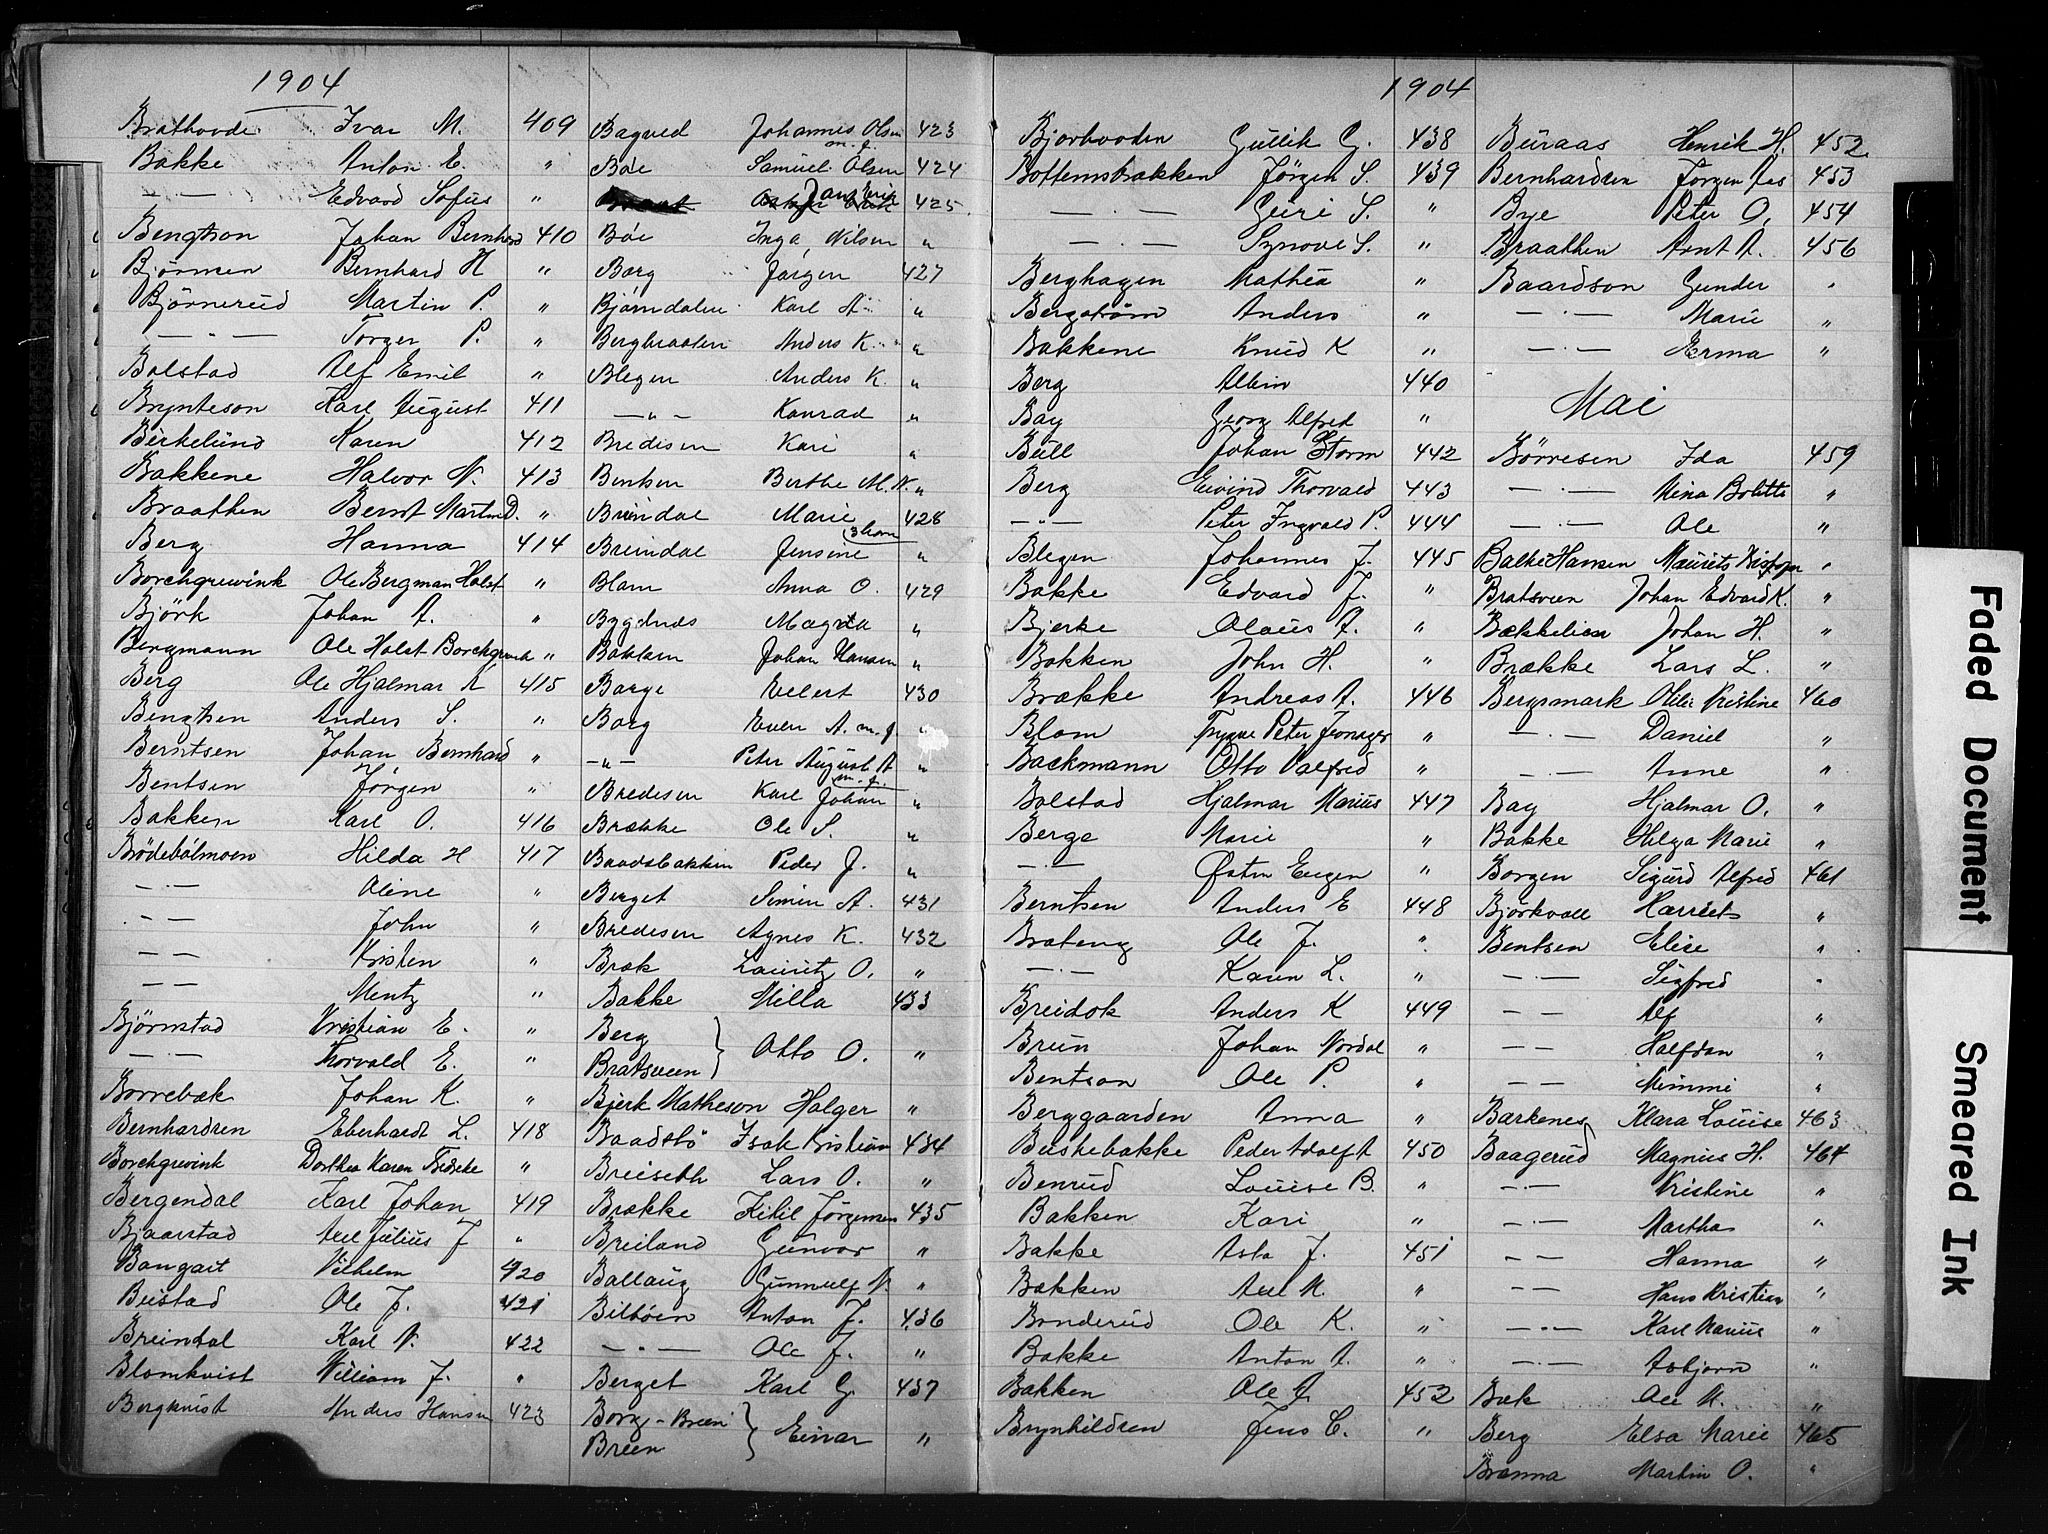 1904
Brathovde Ivar M. 409
Bakke Anton E. "
— — Edvard Sofus "
Bengtson Johan Bernhard 410
Björnsen Bernhard H "
Björnerud Martin P. "
— · — Torger P. "
Bolstad Alf Emil "
Brynteson Karl August 411
Birkelund Karen 412
Bakkene Halvor N. 413
Braathen Bernt Martin D. "
Berg Hanna 414
Borchgrevink Ole Bergman Holst "
Björk Johan A. "
Bergmann Ole Holst Borchgrevink "
Berg Ole Hjalmar K 415
Bengtsen Anders S. "
Berntsen Johan Bernhard "
Bentsen Jørgen "
Bakken Karl O. 416
Brödebölmoen Hilda H 417
— · — Oline "
— · — John "
— — Kristen "
— — Mentz "
Björnstad Kristian E. "
— · — Thorvald E. "
Borrebæk Johan K. "
Bernhardsen Eberhardt L. 418
Borchgrevink Dorthea Karen Fredrike "
Bergendal Karl Johan 419
Bjaarstad Axel Julius J "
Bangart Vilhelm 420
Beistad Ole J. 421
Breindal Karl N. 422
Blomkvist William J. "
Bergkvist Anders Hansen 423
Bagved Johannes Olsen m. f. 423
Böe Samuel Olsen 424
Jans Erik 425
Böe Inga Nilsen "
Borg Jörgen 427
Björndalen Karl A "
Bergbraaten Anders K. "
Blegen Anders K. "
— " — Konrad "
Bredesen Kari "
Bentsen Berthe M. N. "
Breindal Marie 428
Breindal Jensine (3 barn "
Blom Anna O. 429
Bygdnes Magda "
Bakken Johan Hansen "
Borge Eilert 430
Borg Even A. m. f. "
— " — Peter August A "
Bredesen Karl Johan m. f. "
Brække Ole S. "
Baadsbakken Peder J. "
Berget Simen A. 431
Bredesen Agnes K. 432
Bræk Lauritz O. "
Bakke Milla 433
Berg
Bratsveen } Otto O. "
Bjerk Matheson Holger "
Baadstö Isak Kristian 434
Breiseth Lars O. "
Brække Kitil Jörgensen 435
Breiland Gunvor "
Ballaug Gunnulf N. "
Bilböen Anton J. 436
— " — Ole J. "
Berget Karl G. 437
Borg - Breen
Breen } Einar "
1904
Bjorhovden Gullik G. 438
Bottemsbakken Jörgen S. 439
— · — Guri S. "
— · — Synove S. "
Berghagen Mathea "
Bergström Anders "
Bakkene Knud K "
Berg Albin 440
Bay Georg Alfred "
Bull Johan Storm 442
Berg Eivind Thorvald 443
— " — Peter Ingvald P. 444
Blegen Johannes J. 445
Bakke Edvard J. "
Bjerke Olaus A. "
Bakken John H. "
Brække Andreas A. 446
Blom Trygve Peter "
Backmann Otto Valfrid "
Bolstad Hjalmar Marius 447
Berge Marie "
— · — Östen Eugen "
Berntsen Anders E 448
Brateng Ole J. "
— · — Karen L. "
Breidok Anders K 449
Brun Johan Nordal "
Bentson Ole P. "
Berggaarden Anna "
Buskebakke Peder Adolft 450
Benrud Louise B. "
Bakken Kari "
Bakke Asta J. 451
Bakken Axel M. "
Bonderud Ole K. "
Bakke Anton A. "
Bakken Ole A. 452
Brynhildsen Jens C. "
Buraas Henrik H. 452
Bernhardsen Jørgen Jas 453
Bye Peter O. 454
Braathen Arnt A. 456
Baardson Gunder "
— · — Marie "
— · — Erma "
Mai
Børresen Ida 459
— · — Mina Bolette "
— · — Ole "
Balke Hansen Maurits "
Bratsveen Johan Edvard K. "
Bækkelien Johan H. "
Brække Lars L. "
Bergsmark Olile Kristine 460
— · — Daniel "
— · — Anne "
Bay Hjalmar O. "
Bakke Helga Marie "
Borgen Sigurd Alfred 461
Björkvall Harriet "
Bentsen Elise "
— · — Sigfred "
— — Alf "
— — Halfdan "
— — Mimmi "
Barkenes Klara Louise 463
Baagerud Magnus H. 464
— · — Kristine "
— · — Martha "
— — Hanna "
— — Hans Kristian "
— · — Karl Marius "
— · — Asbjørn "
Bæk Ole K. "
Berg Elsa Marie 465
Brænna Martin O. "
Faded Document
Smeared Ink